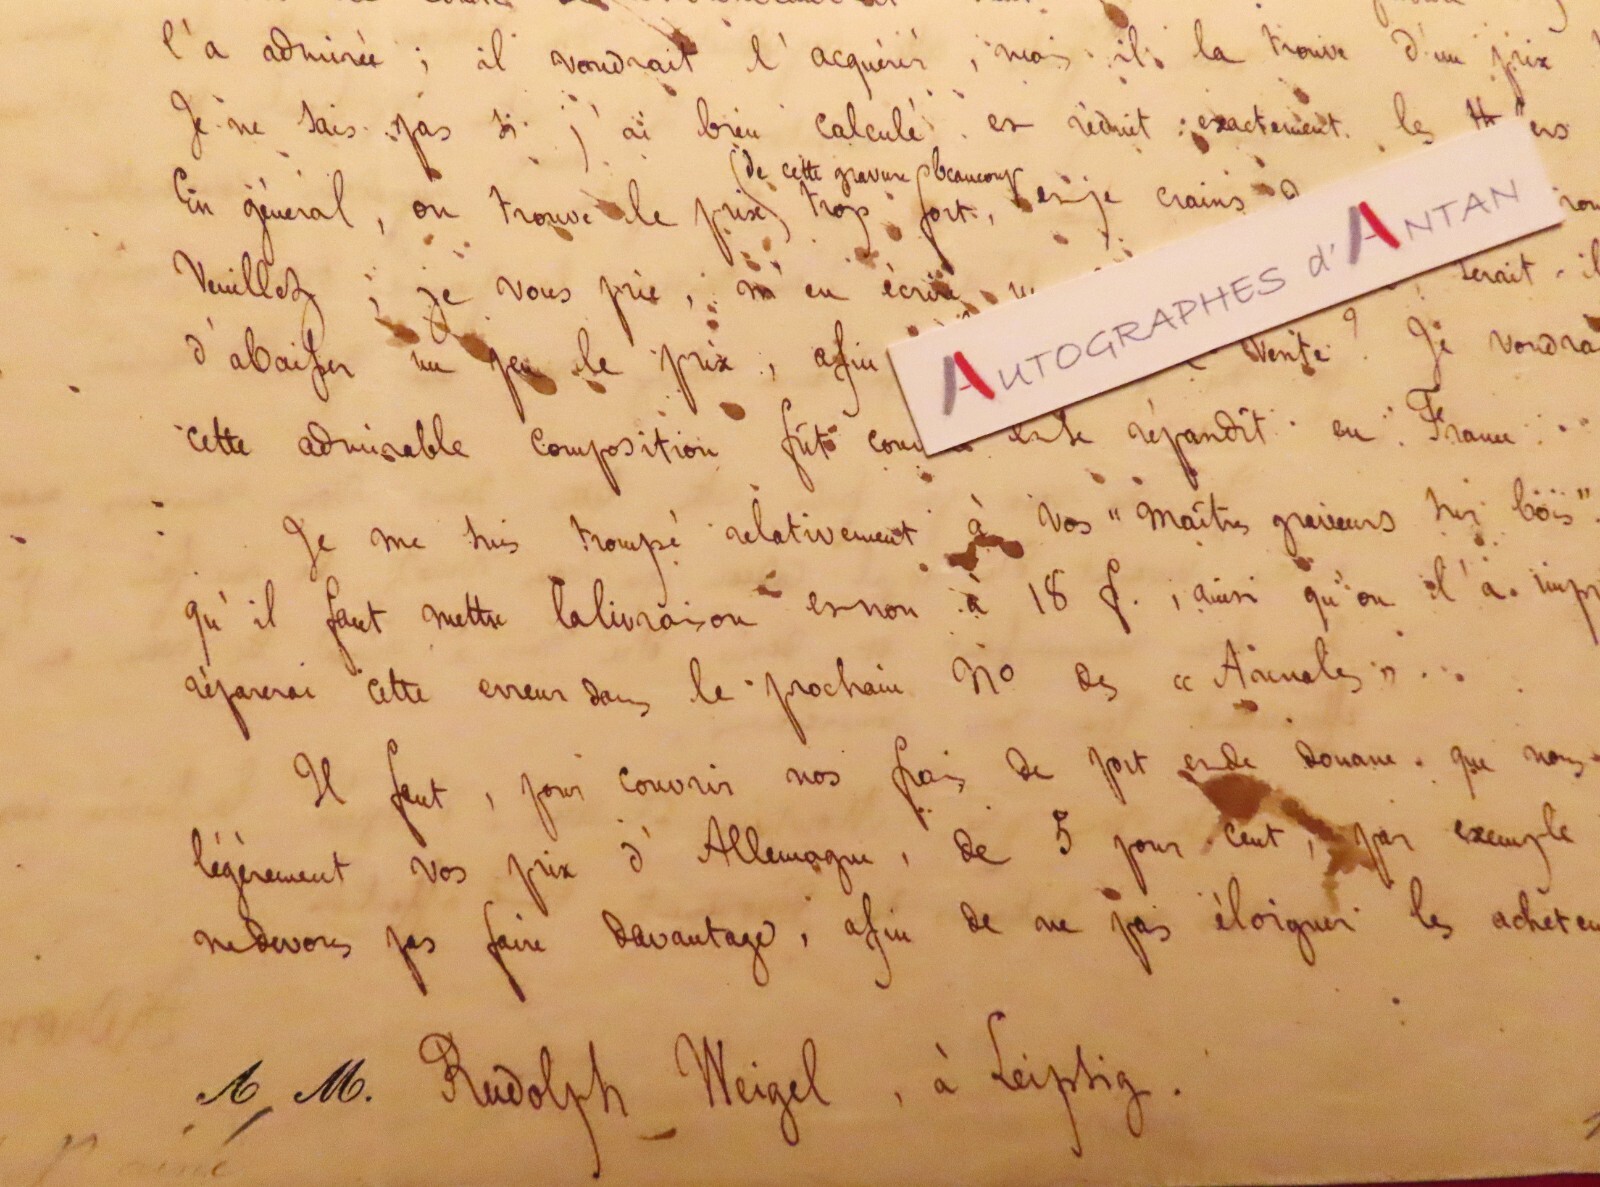 l'a admirée ; il voudrait l'acquérir, mais il la trouve d'un prix
Je ne sais pas si j'ai bien calculé et réduit exactement les
(de cette gravure) beaucoup
En général, on trouve le prix trop fort, et je crains
Veuillez, je vous prie, m'en écrire serait-il
d'abaisser un peu le prix, afin vente? Je voudra
cette admirable composition fût et se répandît en France.
Je me suis trompé relativement à vos "Maîtres graveurs sur bois".
qu'il faut mettre la livraison et non à 18 f., ainsi qu'on l'a impr
réparerai cette erreur dans le prochain No des « Annales »...
Il faut, pour couvrir nos frais de port et de douane, que nous
légèrement vos prix d'Allemagne, de 5 pour cent, par exemple
ne devons pas faire davantage, afin de ne pas éloigner les acheteu
A M. Rudolph Weigel, à Leipsig.
AUTOGRAPHES d'ANTAN